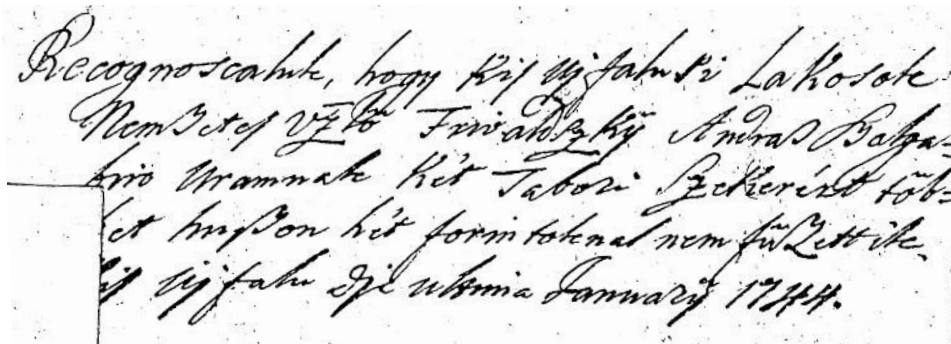 Recognoscaluk, hogy Kis Ujfalusi Lakosok
Nemzetes Vzlö Frivaldszkÿ Andras Szolga-
biro Uramnak Két Tabori Szekerént töb-
bet huszon hét forintoknal nem fűzettük
Kis Ujfalu die ultima Januarÿ 1744.